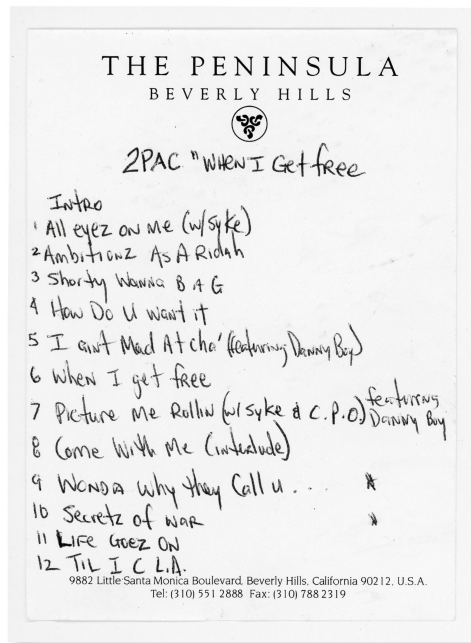 THE PENINSULA
BEVERLY HILLS
2PAC "WHEN I Get free
Intro
1 All eyez on me (w/Syke)
2 Ambitionz As A Ridah
3 Shorty Wanna B A G
4 How Do U want it
5 I aint Mad At cha' (featuring Danny Boy)
6 When I get free
7 Picture Me Rollin (w/ syke & C.P.O.) featuring Danny Boy
8 Come With Me (interlude)
9 WONDA Why they Call U ....
10 Secretz of WAR
11 LIFE GOEZ ON
12 TIL I C L.A.
9882 Little Santa Monica Boulevard, Beverly Hills, California 90212, U.S.A.
Tel: (310) 551 2888 Fax: (310) 788 2319